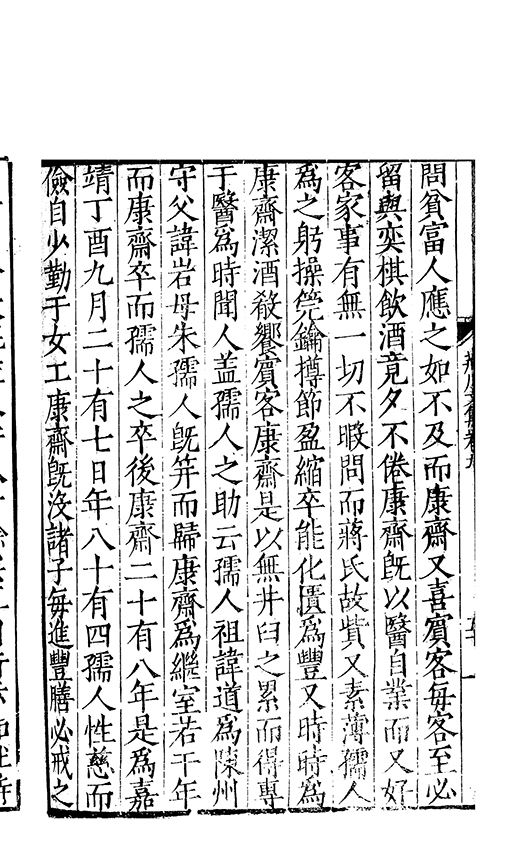 問貧富人應之如不及而康齋又喜賓客每客至必
留與奕棋飲酒竟夕不倦康齋旣以醫自業而又好
客家事有無一切不暇問而蔣氏故貲又素薄孺人
爲之躬操筦鑰撙節盈縮卒能化匱爲豐又時時爲
康齋潔酒殽饗賓客康齋是以無井臼之累而得專
于醫爲時聞人盖孺人之助云孺人祖諱道爲陳州
守父諱岩母朱孺人旣笄而歸康齋爲繼室若干年
而康齋卒而孺人之卒後康齋二十有八年是爲嘉
靖丁酉九月二十有七日年八十有四孺人性慈而
儉自少勤于女工康齋旣沒諸子每進豐膳必戒之